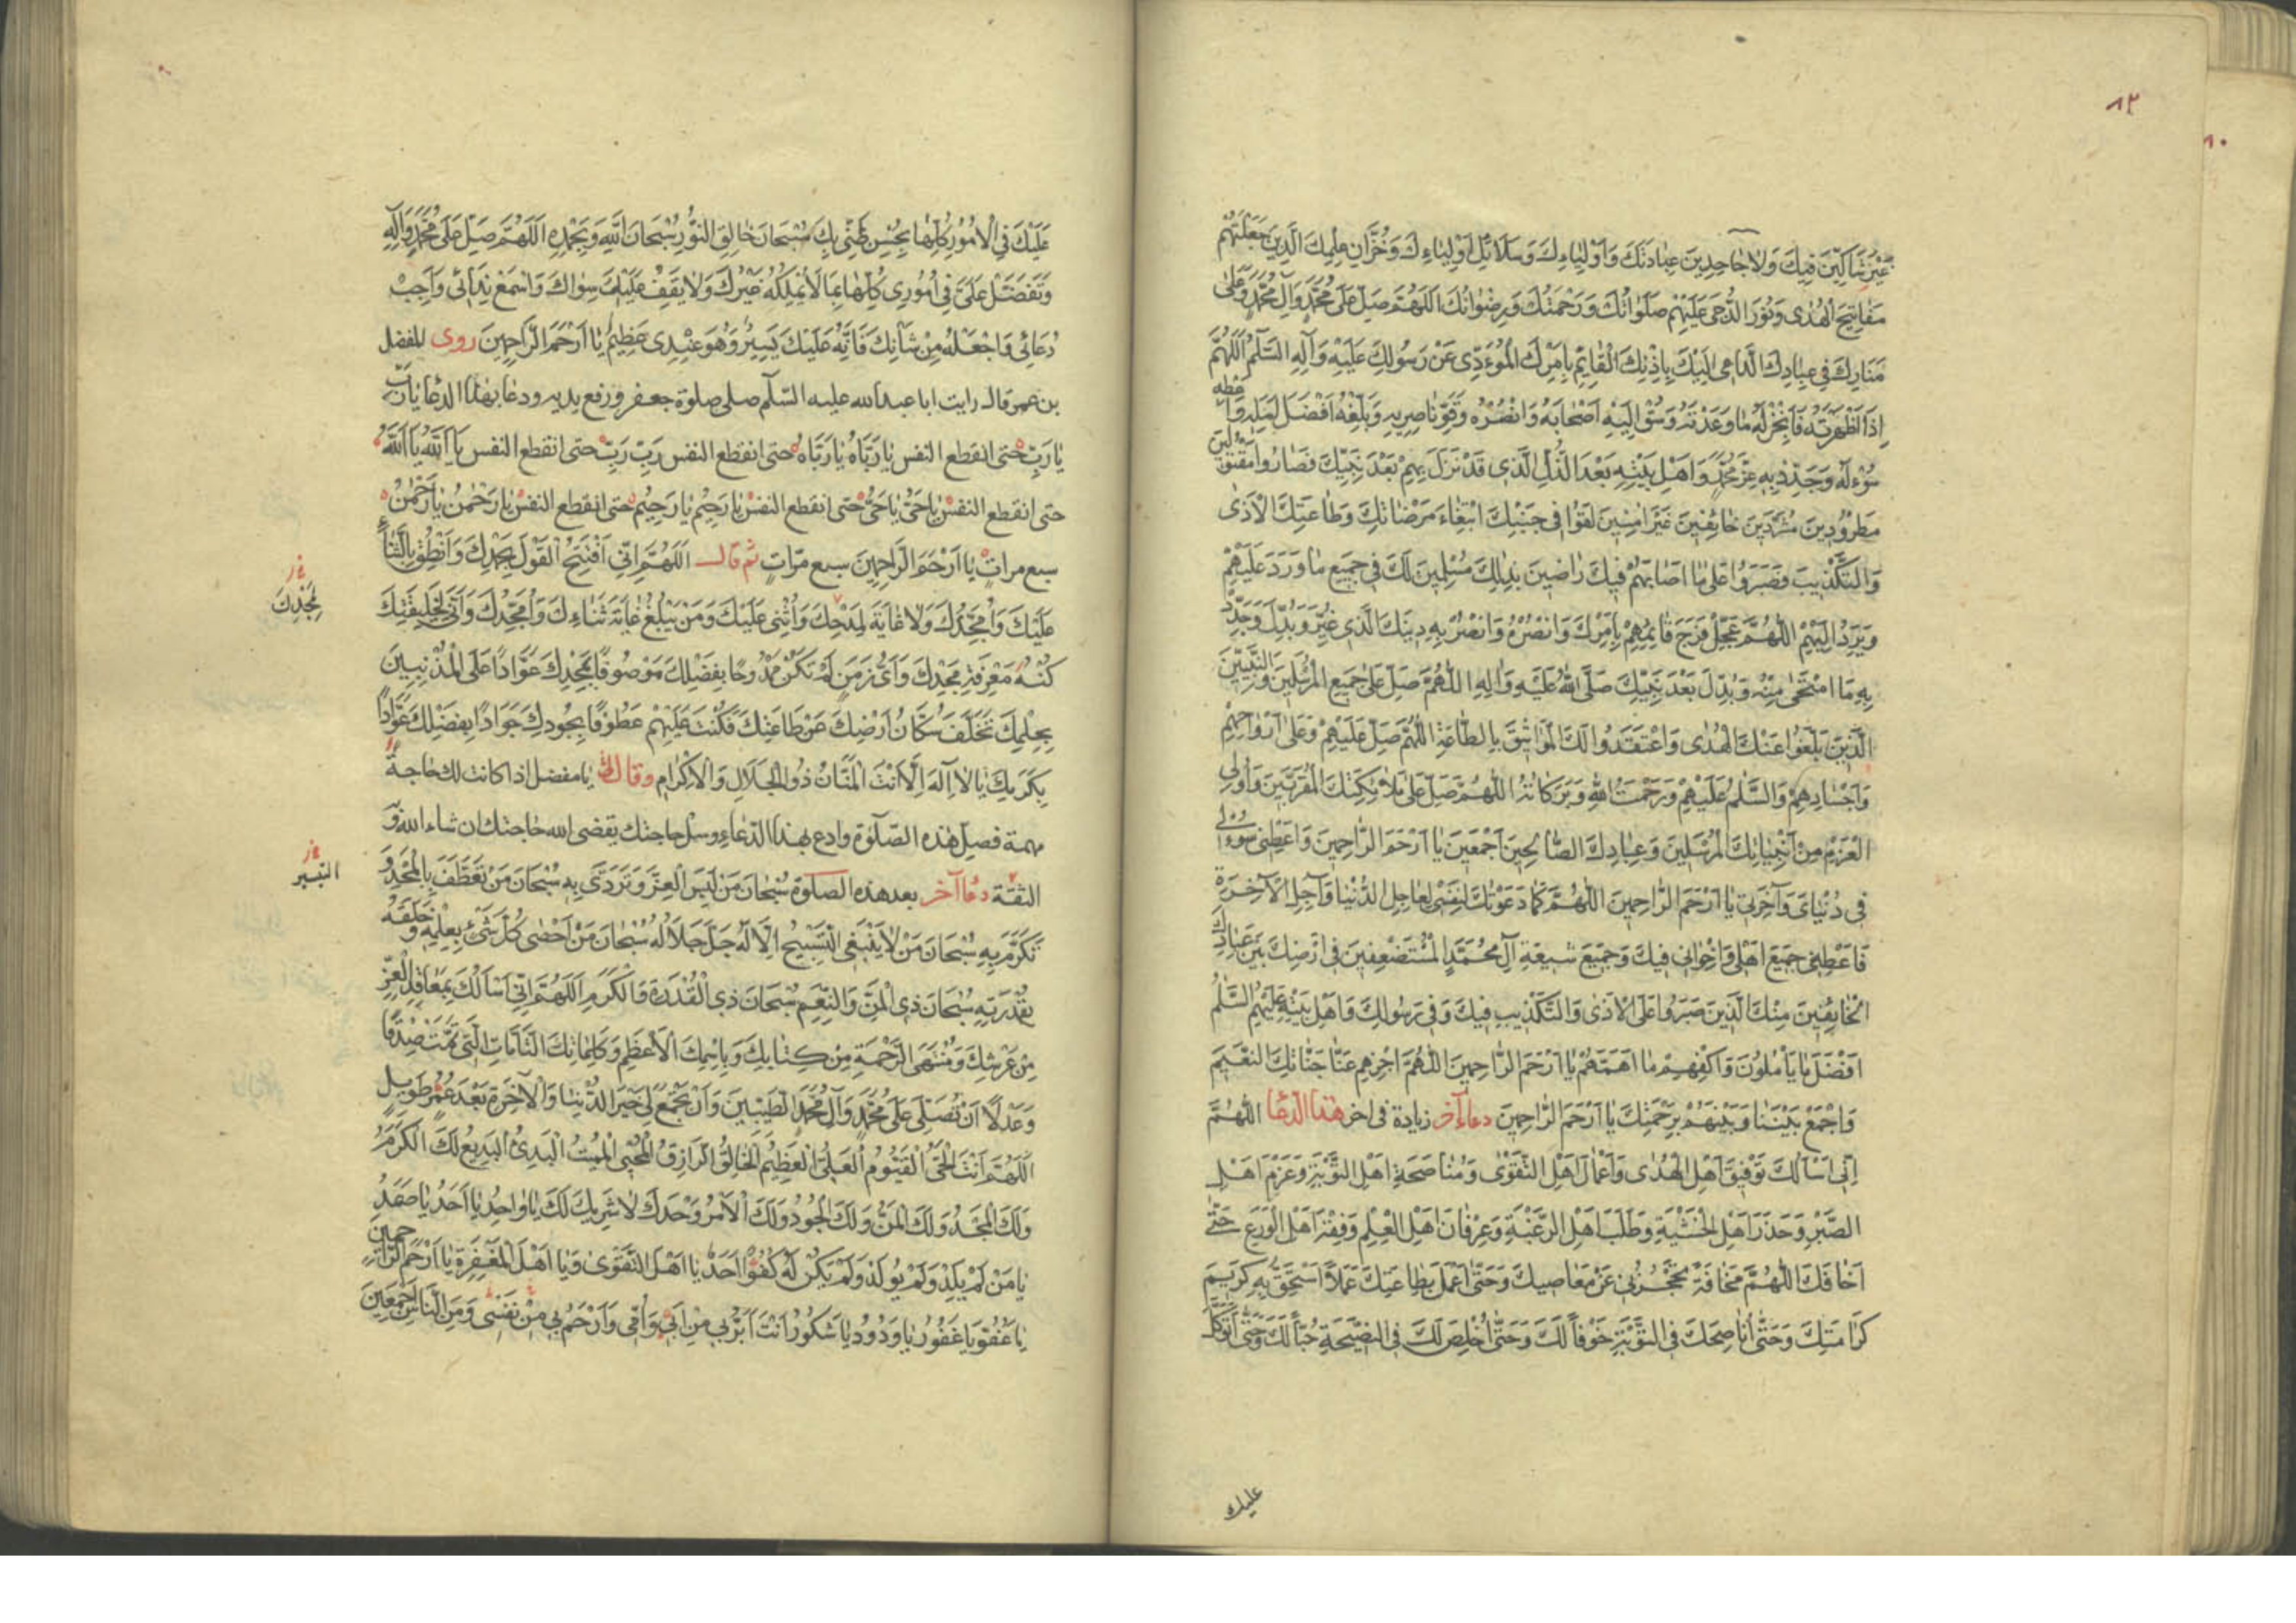 ٨٢
غَيْرَ شَاكِّينَ فِيكَ وَلَا جَاحِدِينَ عِبَادَتَكَ وَأَوْلِيَاءِكَ وَسَلَائِلَ أَوْلِيَاءِكَ وَخُزَّانِ عِلْمِكَ الَّذِينَ جَعَلْتَهُمْ
مَفَاتِيحَ الْهُدَى وَنُورَ الدُّجَى عَلَيْهِمْ صَلَوَاتُكَ وَرَحْمَتُكَ وَرِضْوَانُكَ اللَّهُمَّ صَلِّ عَلَى مُحَمَّدٍ وَآلِ مُحَمَّدٍ وَعَلَى
مَنَارِكَ فِي عِبَادِكَ الدَّاعِى إِلَيْكَ بِإِذْنِكَ الْقَائِمِ بِأَمْرِكَ الْمُؤَدِّى عَنْ رَسُولِكَ عَلَيْهِ وَآلِهِ السَّلَمُ اللَّهُمَّ
إِذَا أَظْهَرْتَهُ فَأَنْجِزْ لَهُ مَا وَعَدْتَهُ وَسُقْ إِلَيْهِ أَصْحَابَهُ وَانْصُرْهُ وَقَوِّ نَاصِرِيهِ وَبَلِّغْهُ أَفْضَلَ أَمَلِهِ وَأَعْطِهِ
سُؤْلَهُ وَجَدِّدْ بِهِ عِزَّ مُحَمَّدٍ وَأَهْلِ بَيْتِهِ بَعْدَ الذُّلِّ الَّذِى قَدْ نَزَلَ بِهِمْ بَعْدَ نَبِيِّكَ فَصَارُوا مَقْتُولِينَ
مَطْرُودِينَ مُشَرَّدِينَ خَائِفِينَ غَيْرَ آمِنِينَ لَقَوْا فِى جَنْبِكَ ابْتِغَاءَ مَرْضَاتِكَ وَطَاعَتِكَ الْأَذَى
وَالتَّكْذِيبَ فَصَبَرُوا عَلَى مَا أَصَابَهُمْ فِيكَ رَاضِينَ بِذَلِكَ مُسَلِّمِينَ لَكَ فِى جَمِيعِ مَا وَرَدَ عَلَيْهِمْ
وَيَرِدُ إِلَيْهِمْ اللَّهُمَّ عَجِّلْ فَرَجَ قَائِمِهِمْ بِأَمْرِكَ وَانْصُرْهُ وَانْصُرْ بِهِ دِينَكَ الَّذِى غُيِّرَ وَبُدِّلَ وَجَدِّدْ
بِهِ مَا امْتَحَى مِنْهُ وَبُدِّلَ بَعْدَ نَبِيِّكَ صَلَّى اللهُ عَلَيْهِ وَآلِهِ اللَّهُمَّ صَلِّ عَلَى جَمِيعِ الْمُرْسَلِينَ وَالنَّبِيِّينَ
الَّذِينَ بَلَّغُوا عَنْكَ الْهُدَى وَاعْتَقَدُوا لَكَ الْمَوَاثِيقَ بِالطَّاعَةِ اللَّهُمَّ صَلِّ عَلَيْهِمْ وَعَلَى أَرْوَاحِهِمْ
وَأَجْسَادِهِمْ وَالسَّلَمُ عَلَيْهِمْ وَرَحْمَتُ اللهِ وَبَرَكَاتُهُ اللَّهُمَّ صَلِّ عَلَى مَلَائِكَتِكَ الْمُقَرَّبِينَ وَأُولِى
الْعَزْمِ مِنْ أَنْبِيَائِكَ الْمُرْسَلِينَ وَعِبَادِكَ الصَّالِحِينَ أَجْمَعِينَ يَا أَرْحَمَ الرَّاحِمِينَ وَاعْطِنِى سُؤْلِى
فِى دُنْيَاىَ وَآخِرَتِى يَا أَرْحَمَ الرَّاحِمِينَ اللَّهُمَّ كَمَا دَعَوْتُكَ لِنَفْسِى لِعَاجِلِ الدُّنْيَا وَآجِلِ الْآخِرَةِ
فَاعْطِنِى جَمِيعَ أَهْلِى وَإِخْوَانِى فِيكَ وَجَمِيعَ شِيعَةِ آلِ مُحَمَّدٍ الْمُسْتَضْعَفِينَ فِى أَرْضِكَ بَيْنَ عِبَادِكَ
الْخَائِفِينَ مِنْكَ الَّذِينَ صَبَرُوا عَلَى الْأَذَى وَالتَّكْذِيبِ فِيكَ وَفِى رَسُولِكَ وَأَهْلِ بَيْتِهِ عَلَيْهِمُ السَّلَمُ
أَفْضَلَ مَا يَأْمُلُونَ وَاكْفِهِمْ مَا أَهَمَّهُمْ يَا أَرْحَمَ الرَّاحِمِينَ اللَّهُمَّ اجْزِهِمْ عَنَّا جَنَّاتِكَ النَّعِيمَ
وَاجْمَعْ بَيْنَنَا وَبَيْنَهُمْ بِرَحْمَتِكَ يَا أَرْحَمَ الرَّاحِمِينَ دعاء آخر زيادة فى اخر هذا الدعا اللَّهُمَّ
إِنِّى أَسْأَلُكَ تَوْفِيقَ أَهْلِ الْهُدَى وَأَعْمَالَ أَهْلِ التَّقْوَى وَمُنَاصَحَةَ أَهْلِ التَّوْبَةِ وَعَزْمَ أَهْلِ
الصَّبْرِ وَحَذَرَ أَهْلِ الْخَشْيَةِ وَطَلَبَ أَهْلِ الرَّغْبَةِ وَعِرْفَانَ أَهْلِ الْعِلْمِ وَفِقْهَ أَهْلِ الْوَرَعِ حَتَّى
أَخَافَكَ اللَّهُمَّ مَخَافَةً تَحْجُزُنِى عَنْ مَعَاصِيكَ وَحَتَّى أَعْمَلَ بِطَاعَتِكَ عَمَلًا أَسْتَحِقُّ بِهِ كَرِيمَ
كَرَامَتِكَ وَحَتَّى أُنَاصِحَكَ فِى التَّوْبَةِ خَوْفًا لَكَ وَحَتَّى أُخْلِصَ لَكَ فِى النَّصِيحَةِ حُبًّا لَكَ وَحَتَّى أَتَوَكَّلَ
عليك
عَلَيْكَ فِى الْأُمُورِ كُلِّهَا بِحُسْنِ ظَنِّى بِكَ سُبْحَانَ خَالِقِ النُّورِ سُبْحَانَ اللهِ وَبِحَمْدِهِ اللَّهُمَّ صَلِّ عَلَى مُحَمَّدٍ وَآلِهِ
وَتَفَضَّلْ عَلَىَّ فِى أُمُورِى كُلِّهَا بِمَا لَا يَمْلِكُهُ غَيْرُكَ وَلَا يَقِفُ عَلَيْهَا سِوَاكَ وَاسْمَعْ نِدَائِى وَأَجِبْ
دُعَائِى وَاجْعَلْهُ مِنْ شَأْنِكَ فَإِنَّهُ عَلَيْكَ يَسِيرٌ وَهُوَ عِنْدِى عَظِيمٌ يَا أَرْحَمَ الرَّاحِمِينَ روى المفضل
بن عمر قال رايت ابا عبد الله عليه السّلم صلى صلوة جعفر ورفع يديه ودعا بهذا الدعا يَا رَبِّ
يَا رَبِّ حتى انقطع النفس يَا رَبَّاهْ يَا رَبَّاهْ حتى انقطع النفس رَبِّ رَبِّ حتى انقطع النفس يَا اَللهُ يَا اَللهُ
حتى انقطع النفس يَا حَىُّ يَا حَىُّ حتى انقطع النفس يَا رَحِيمُ يَا رَحِيمُ حتى انقطع النفس يَا رَحْمٰنُ يَا رَحْمٰنُ
سبع مرات يَا أَرْحَمَ الرَّاحِمِينَ سبع مرّات ثم قال اللَّهُمَّ إِنِّى أَفْتَتِحُ الْقَوْلَ بِحَمْدِكَ وَأَنْطِقُ بِالثَّنَاءِ
عَلَيْكَ وَأُمَجِّدُكَ وَلَا غَايَةَ لِمَدْحِكَ وَأُثْنِى عَلَيْكَ وَمَنْ يَبْلُغُ غَايَةَ ثَنَاءِكَ وَأُمَجِّدُكَ وَأَنَّى لِخَلِيقَتِكَ
كُنْهُ مَعْرِفَةِ مَجْدِكَ وَأَىُّ زَمَنٍ لَمْ تَكُنْ مَمْدُوحًا بِفَضْلِكَ مَوْصُوفًا بِمَجْدِكَ عَوَّادًا عَلَى الْمُذْنِبِينَ
بِحِلْمِكَ تَخَلَّفَ سُكَّانُ أَرْضِكَ عَنْ طَاعَتِكَ فَكُنْتَ عَلَيْهِمْ عَطُوفًا بِجُودِكَ جَوَادًا بِفَضْلِكَ عَوَّادًا
بِكَرَمِكَ يَا لَا إِلَهَ إِلَّا أَنْتَ الْمَنَّانُ ذُو الْجَلَالِ وَالْإِكْرَامِ وقال لى يا مفضل اذا كانت لك حاجة
مهمة فصلّ هذه الصّلوة وادع بهذا الدّعاء وسل حاجتك يقضى الله حاجتك ان شاء الله وَ
الثقة دعا آخر بعد هذه الصلوة سُبْحَانَ مَنْ لَبِسَ الْعِزَّ وَتَرَدَّى بِهِ سُبْحَانَ مَنْ تَعَطَّفَ بِالْمَجْدِ وَ
تَكَرَّمَ بِهِ سُبْحَانَ مَنْ لَا يَنْبَغِى التَّسْبِيحُ إِلَّا لَهُ جَلَّ جَلَالُهُ سُبْحَانَ مَنْ أَحْصَى كُلَّ شَىْءٍ بِعِلْمِهِ وَخَلَقَهُ
بِقُدْرَتِهِ سُبْحَانَ ذِى الْمَنِّ وَالنِّعَمِ سُبْحَانَ ذِى الْقُدْرَةِ وَالْكَرَمِ اللَّهُمَّ إِنِّى أَسْأَلُكَ بِمَعَاقِدِ الْعِزِّ
مِنْ عَرْشِكَ وَمُنْتَهَى الرَّحْمَةِ مِنْ كِتَابِكَ وَبِاسْمِكَ الْأَعْظَمِ وَكَلِمَاتِكَ التَّامَّاتِ الَّتِى تَمَّتْ صِدْقًا
وَعَدْلًا أَنْ تُصَلِّىَ عَلَى مُحَمَّدٍ وَآلِ مُحَمَّدٍ الطَّيِّبِينَ وَأَنْ تَجْمَعَ لِى خَيْرَ الدُّنْيَا وَالْآخِرَةِ بَعْدَ عُمْرٍ طَوِيلٍ
اللَّهُمَّ أَنْتَ الْحَىُّ الْقَيُّومُ الْعَلِىُّ الْعَظِيمُ الْخَالِقُ الرَّازِقُ الْمُحْيِى الْمُمِيتُ الْبَدِىءُ الْبَدِيعُ لَكَ الْكَرَمُ
وَلَكَ الْمَجْدُ وَلَكَ الْمَنُّ وَلَكَ الْجُودُ وَلَكَ الْأَمْرُ وَحْدَكَ لَا شَرِيكَ لَكَ يَا وَاحِدُ يَا أَحَدُ يَا صَمَدُ
يَا مَنْ لَمْ يَلِدْ وَلَمْ يُولَدْ وَلَمْ يَكُنْ لَهُ كُفُوًا أَحَدٌ يَا أَهْلَ التَّقْوَى وَيَا أَهْلَ الْمَغْفِرَةِ يَا أَرْحَمَ الرَّاحِمِينَ
يَا عَفُوُّ يَا غَفُورُ يَا وَدُودُ يَا شَكُورُ أَنْتَ أَبَرُّ بِى مِنْ أَبِى وَأُمِّى وَأَرْحَمُ بِى مِنْ نَفْسِى وَمِنَ النَّاسِ أَجْمَعِينَ